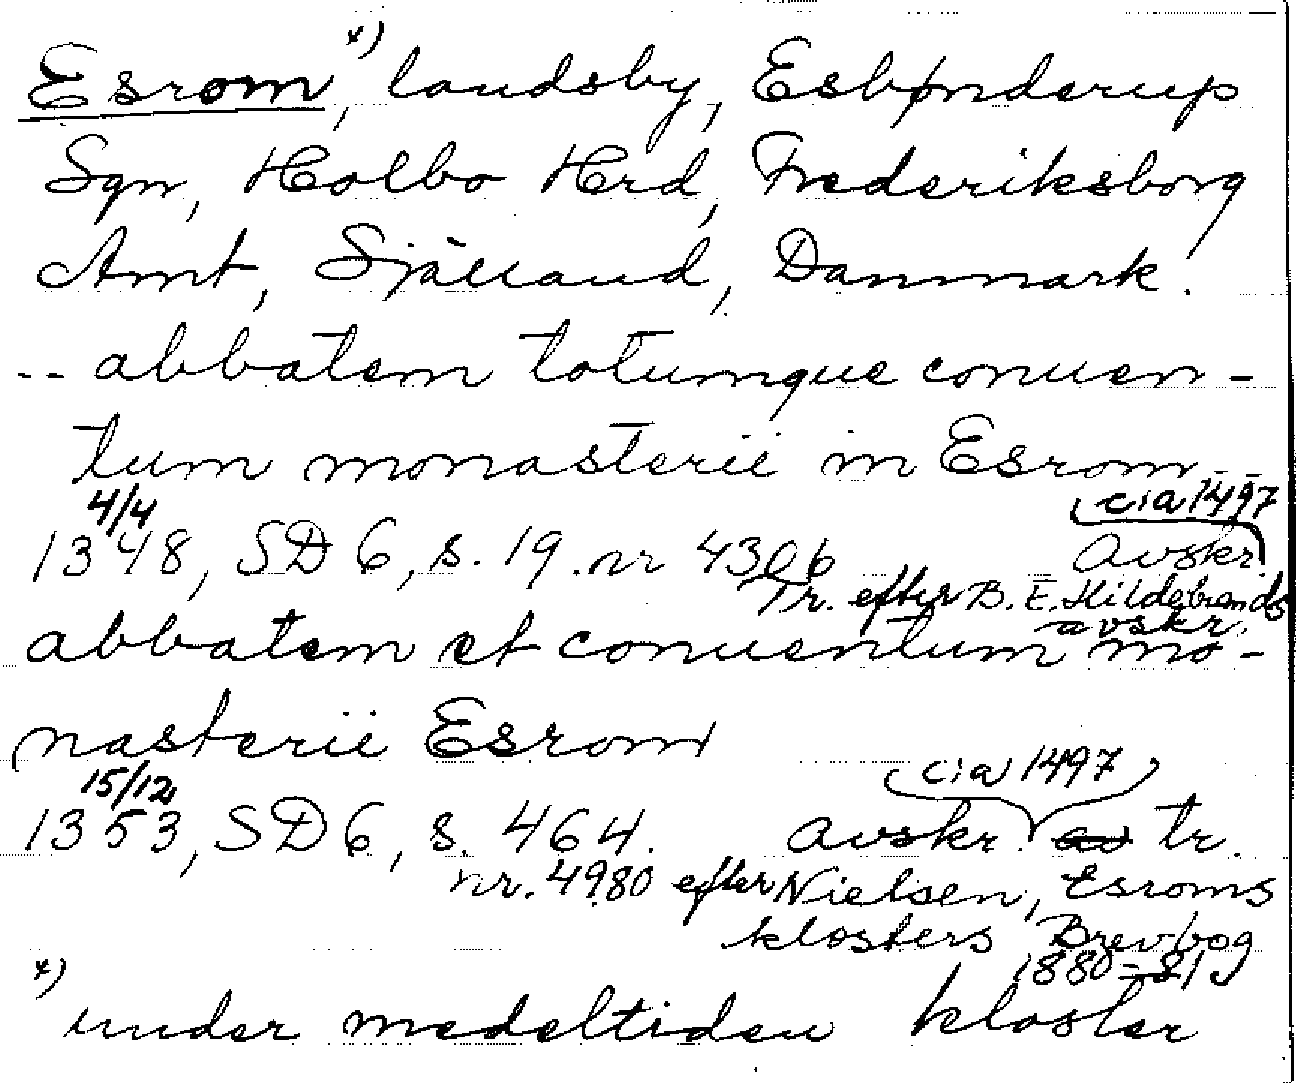 Esrom x), landsby, Esbønderup
Sgn, Holbo Hrd, Frederiksborg
Amt, Själland, Danmark.
-- abbatem totumque conuen-
tum monasterii in Esrom--
4/4 cia 1497
1348, SD 6, s. 19. nr 4306 avskr.
Tr. efter B. E. Hildebrands
avskr.
abbatem et conuentum mo-
nasterii Esrom
15/12 cia 1497
1353, SD 6, s. 464. avskr. av tr.
nr. 4980 efter Nielsen, Esroms
klosters Brevbog
1880-81
x)
under medeltiden kloster